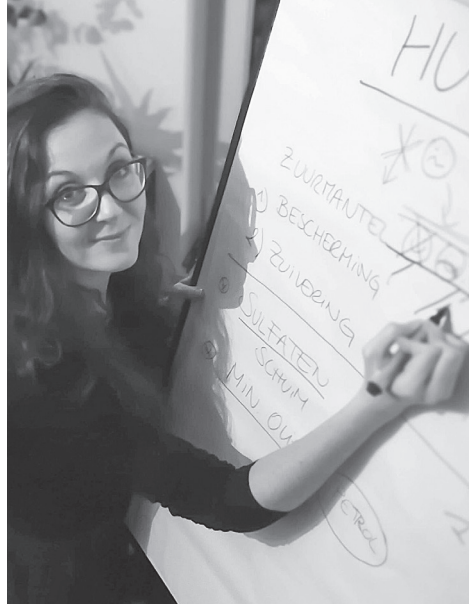 HU
ZUURMANTEL
1) BESCHERMING
2) ZUIVERING
SULFATEN
SCHUIM
MIN OU
CTROL